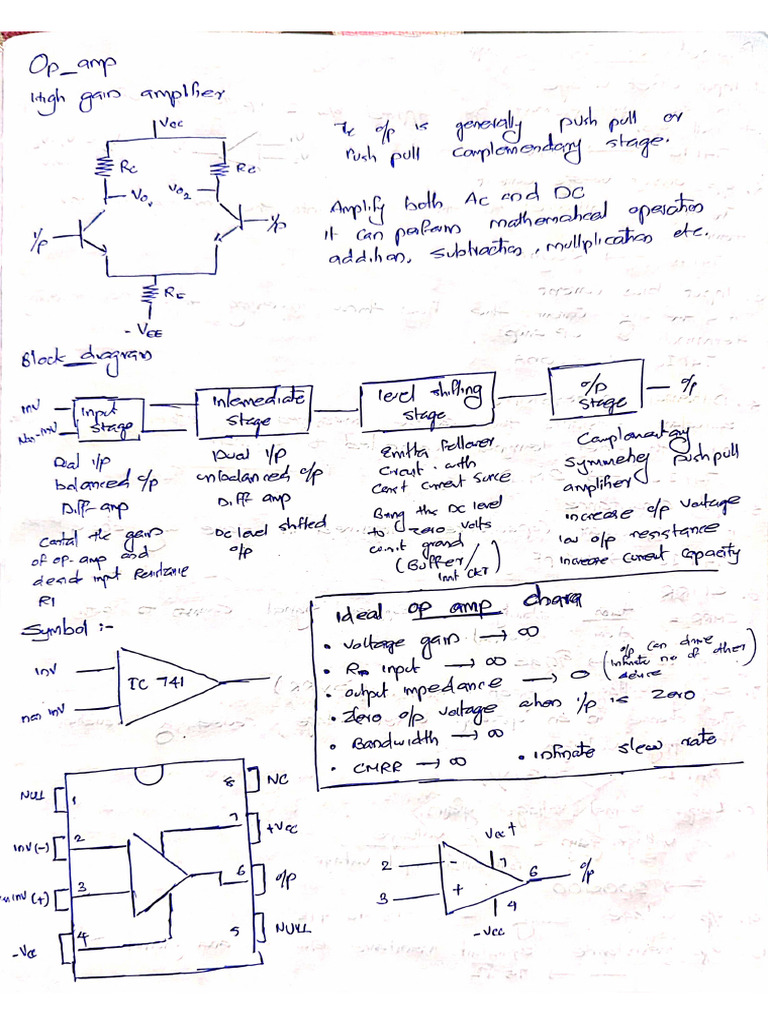 Op_amp
High gain amplifier
Vcc
Rc
Rc
Vo1
Vo2
I/p
I/p
RE
- VEE
The o/p is generally push pull or
Push pull complemendary stage.
Amplify both Ac and DC
it can perform mathematical operation
addition, subtraction, mulliplication etc.
Block diagram
inv
Non-inv
Input
stage
Intemediate
stage
level shifting
stage
o/p
stage
o/p
Dual i/p
balanced o/p
Diff amp
Contol the gain
of op-amp and
decide input Resistance
RI
Dual i/p
unbalanced o/p
Diff amp
Dc level shifted
o/p
Emitter follower
Circuit with
Const current Source
Bring the DC level
to zero volts
w.r.t ground
(Buffer/
CKT)
Complementary
symmetry push pull
amplifier
increase o/p voltage
low o/p resistance
increase Current Capacity
Symbol :-
inv
non inv
IC 741
ideal op amp chara
• voltage gain → ∞
• Rin input → ∞
• output impedance → 0
(o/p can drive
infinite no of other
device)
• Zero o/p voltage when i/p is zero
• Bandwidth → ∞
• CMRR → ∞
• infinate slew rate
NULL
1
8
NC
inv(-)
2
7
+Vcc
inv(+)
3
6
o/p
-Vcc
4
5
NULL
Vcc+
2
-
7
6
o/p
3
+
4
-Vcc